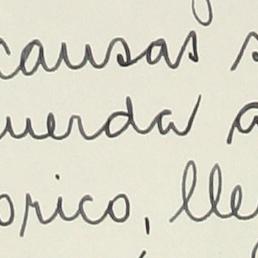 causas s
uerda a
orico, lle